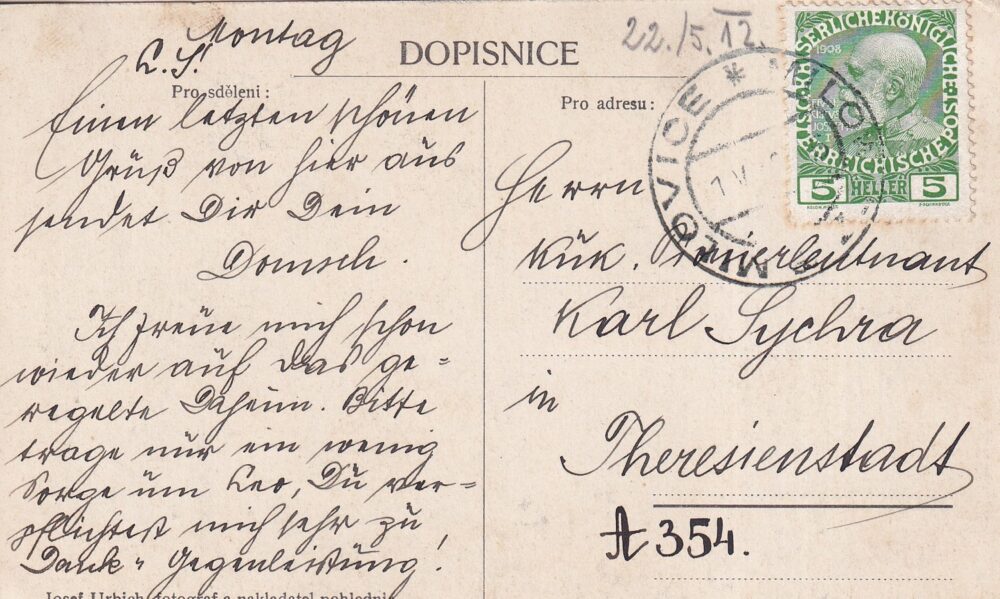 Montag
L. S.!
DOPISNICE
22./5. 12.
Pro sdělení:
Einen letzten schönen
Gruß von hier aus
sendet Dir Dein
Domsch.
Ich freue mich schon
wieder auf das ge=
regelte Daheim. Bitte
trage nur ein wenig
Sorge um Leo, Du ver=
pflichtest mich sehr zu
Dank u Gegenleistung!
Josef Urbich, fotograf a nakladatel pohlednic
Pro adresu:
Herrn
KuK.
Karl Sychra
in
Theresienstadt
A 354.
1908
5 HELLER 5
MILOVICE * MILO